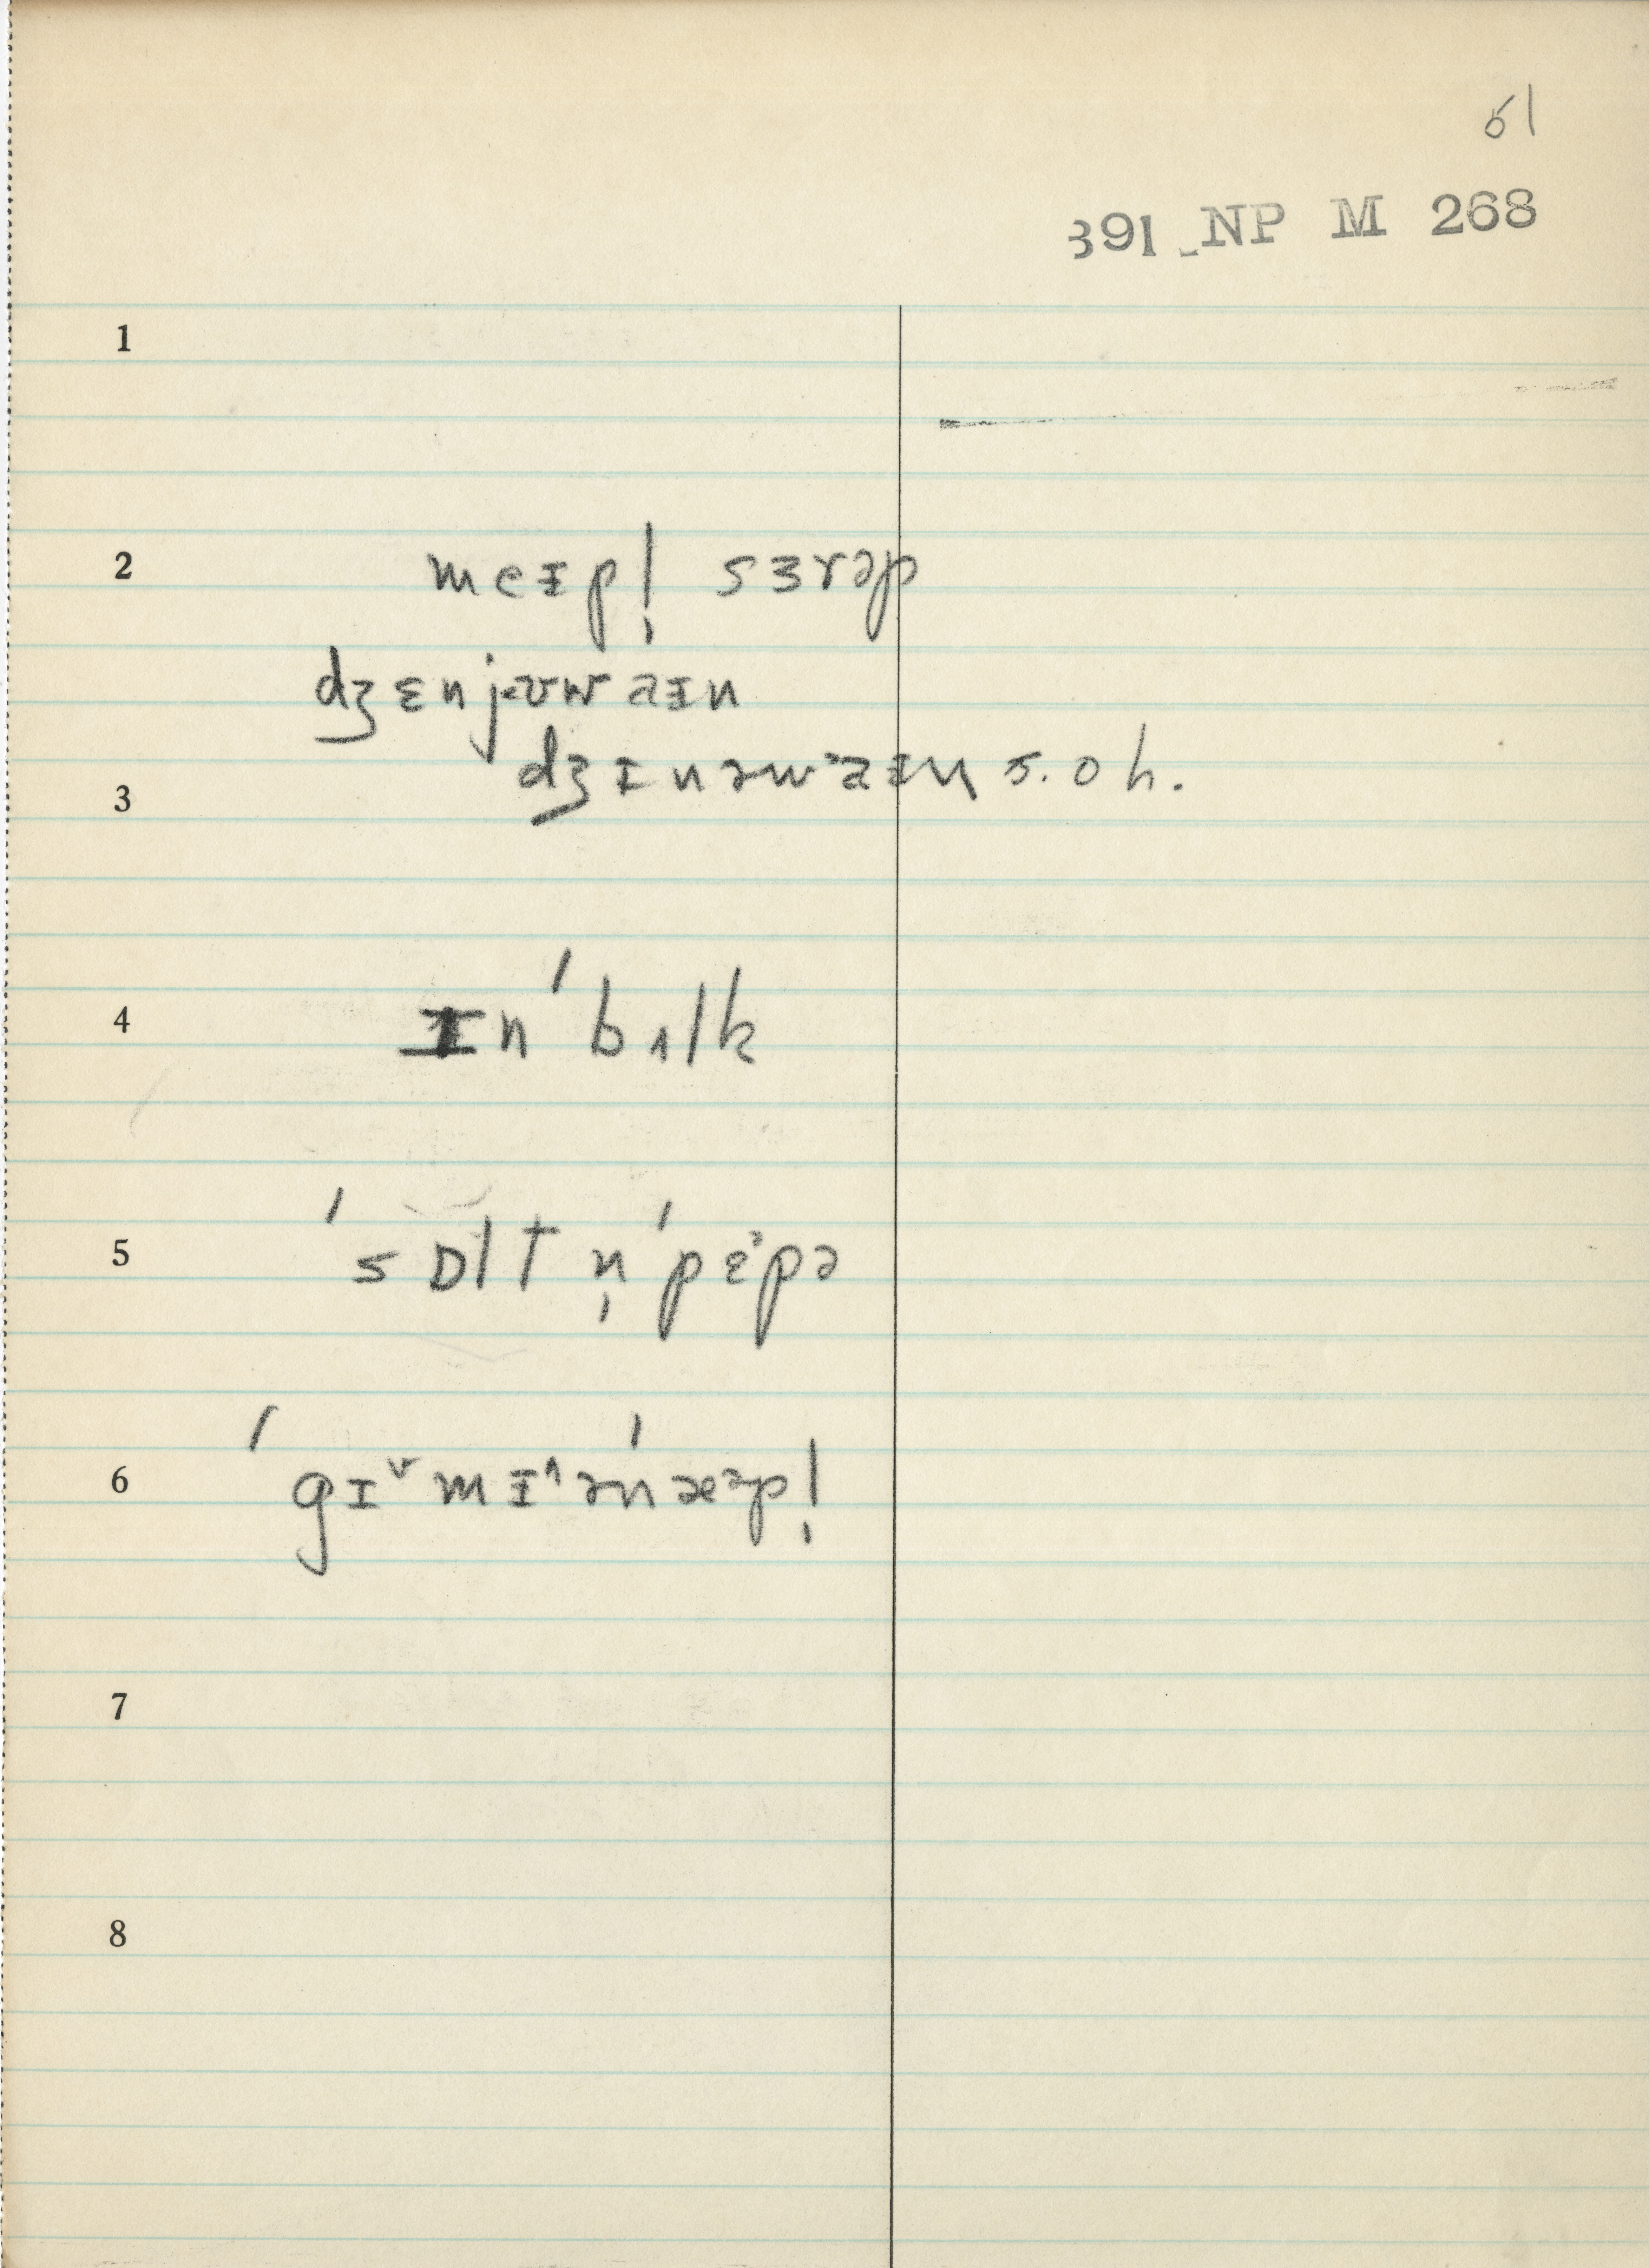 61
391 NP M 268
1
2 meɪpl̩ sɜrəp
dʒɛnjʊwaɪn
dʒɪnəwˈaɪn s. o h.
3
4 ɪn ˈbʌlk
5 ˈsɒlt n̩ ˈpɛˀpə
6 ˈgɪ˅mɪ˄ənˈæəpl̩
7
8